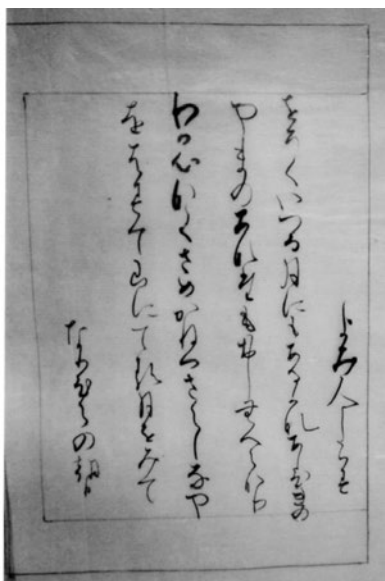 よみ人しらす
をそくいつる月にもあるかなあしひきの
やまのあなたもおしむへらなり
わか心なくさめかねつさらしなや
をはすて山にてる月をみて
なりひらの朝臣